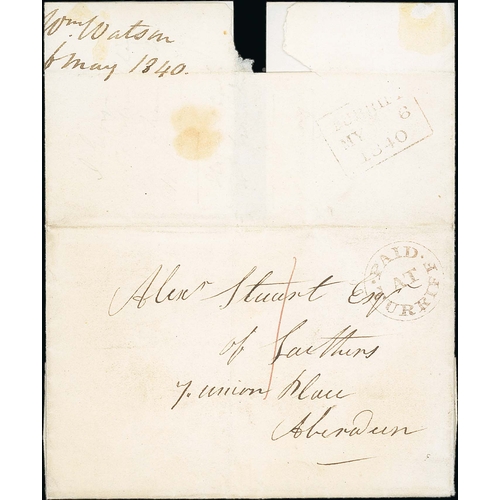 Wm Watson
6 May 1840.
TURRIFF
MY 6
1840
PAID
AT
TURRIFF
Alexr Stuart Esqr
of Laithers
7. Union Place
Aberdeen